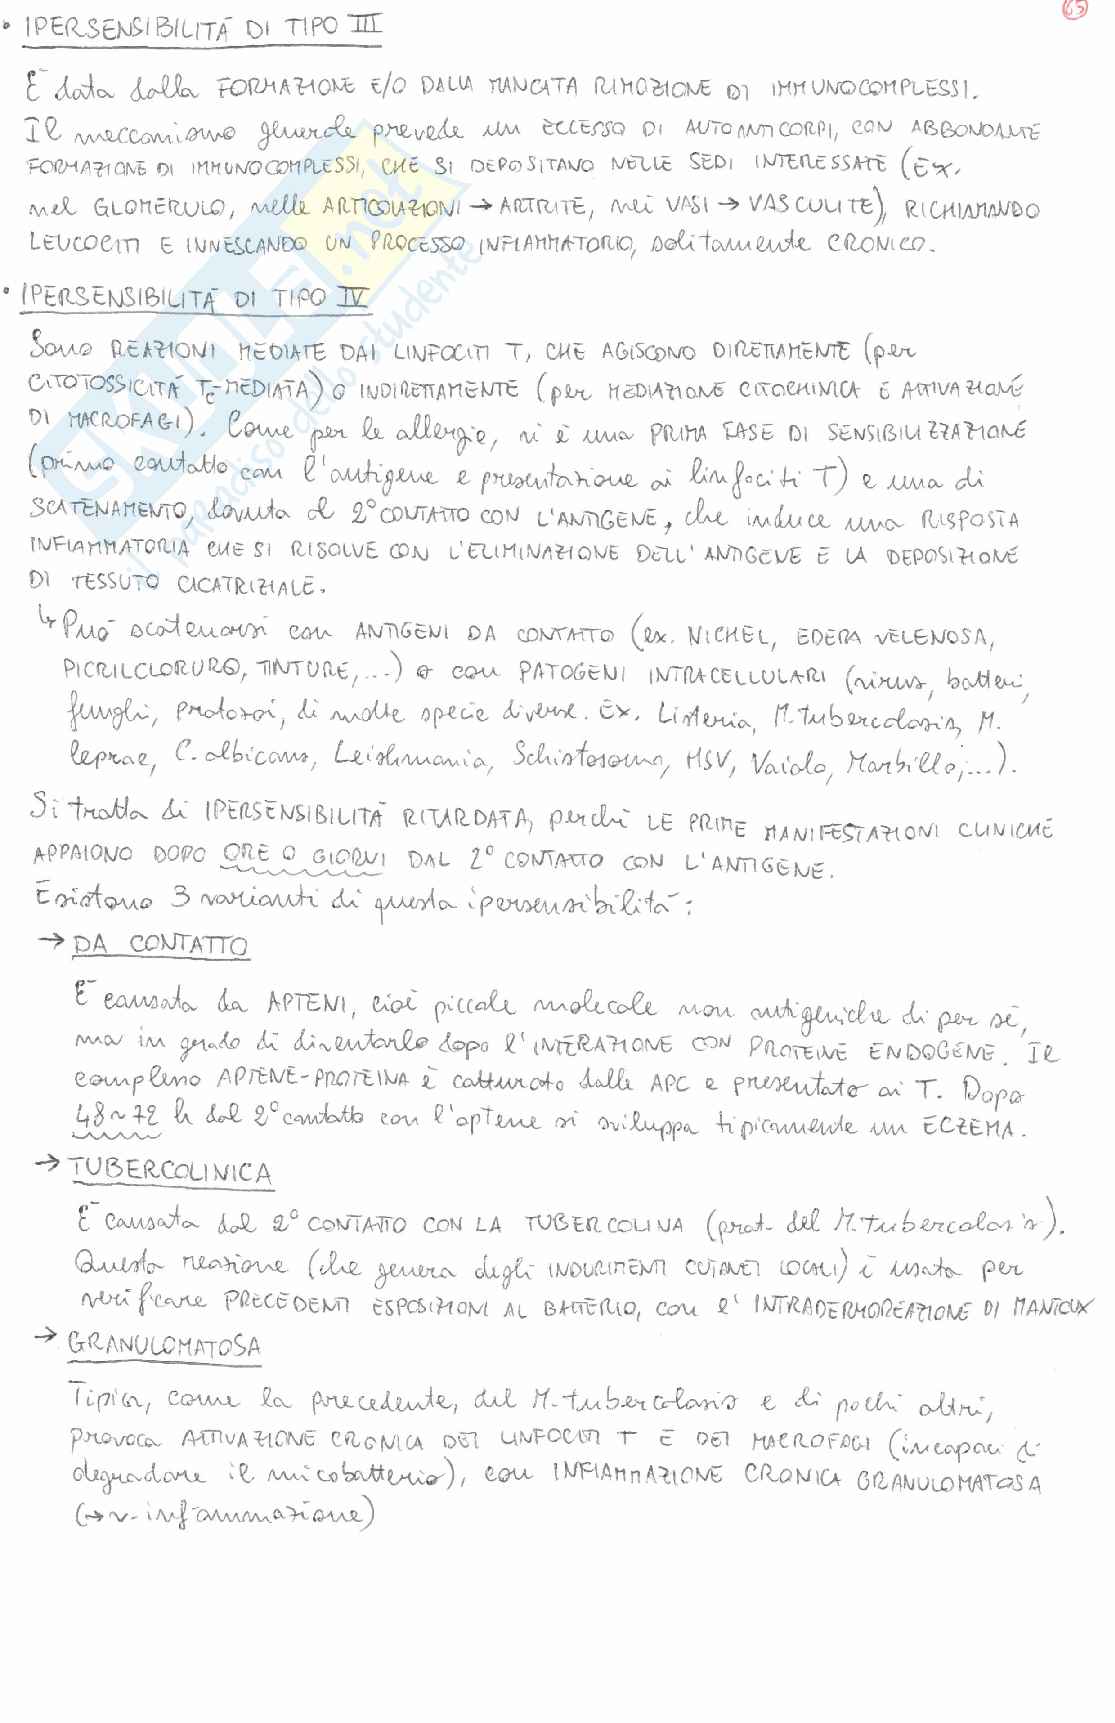 65
• IPERSENSIBILITÀ DI TIPO III
È data dalla FORMAZIONE E/O DALLA MANCATA RIMOZIONE DI IMMUNOCOMPLESSI.
Il meccanismo generale prevede un ECCESSO DI AUTOANTICORPI, CON ABBONDANTE
FORMAZIONE DI IMMUNOCOMPLESSI, CHE SI DEPOSITANO NELLE SEDI INTERESSATE (Ex.
nel GLOMERULO, nelle ARTICOLAZIONI → ARTRITE, nei VASI → VASCULITE), RICHIAMANDO
LEUCOCITI E INNESCANDO UN PROCESSO INFIAMMATORIO, solitamente CRONICO.
• IPERSENSIBILITÀ DI TIPO IV
Sono REAZIONI MEDIATE DAI LINFOCITI T, CHE AGISCONO DIRETTAMENTE (per
CITOTOSSICITÀ Tc-MEDIATA) O INDIRETTAMENTE (per MEDIAZIONE CITOCHINICA E ATTIVAZIONE
DI MACROFAGI). Come per le allergie, vi è una PRIMA FASE DI SENSIBILIZZAZIONE
(primo contatto con l'antigene e presentazione ai linfociti T) e una di
SCATENAMENTO, dovuta al 2° CONTATTO CON L'ANTIGENE, che induce una RISPOSTA
INFIAMMATORIA CHE SI RISOLVE CON L'ELIMINAZIONE DELL'ANTIGENE E LA DEPOSIZIONE
DI TESSUTO CICATRIZIALE.
↳ Può scatenarsi con ANTIGENI DA CONTATTO (ex. NICHEL, EDERA VELENOSA,
PICRILCLORURO, TINTURE, ...) o con PATOGENI INTRACELLULARI (virus, batteri,
funghi, protozoi, di molte specie diverse. Ex. Listeria, M. tubercolosis, M.
leprae, C. albicans, Leishmania, Schistosoma, HSV, Vaiolo, Morbillo, ...).
Si tratta di IPERSENSIBILITÀ RITARDATA, perché LE PRIME MANIFESTAZIONI CLINICHE
APPAIONO DOPO ORE O GIORNI DAL 2° CONTATTO CON L'ANTIGENE.
Esistono 3 varianti di questa ipersensibilità:
→ DA CONTATTO
È causata da APTENI, cioè piccole molecole non antigeniche di per sé,
ma in grado di diventarlo dopo l'INTERAZIONE CON PROTEINE ENDOGENE. Il
complesso APTENE-PROTEINA è catturato dalle APC e presentato ai T. Dopo
48~72 h dal 2° contatto con l'aptene si sviluppa tipicamente un ECZEMA.
→ TUBERCOLINICA
È causata dal 2° CONTATTO CON LA TUBERCOLINA (prot. del M. tubercolosis).
Questa reazione (che genera degli INDURIMENTI CUTANEI LOCALI) è usata per
verificare PRECEDENTI ESPOSIZIONI AL BATTERIO, con l'INTRADERMOREAZIONE DI MANTOUX
→ GRANULOMATOSA
Tipica, come la precedente, del M. tubercolosis e di pochi altri,
provoca ATTIVAZIONE CRONICA DEI LINFOCITI T E DEI MACROFAGI (incapaci di
degradare il micobatterio), con INFIAMMAZIONE CRONICA GRANULOMATOSA
(→ v. infiammazione)
SKUOLA.net
il paradiso dello studente